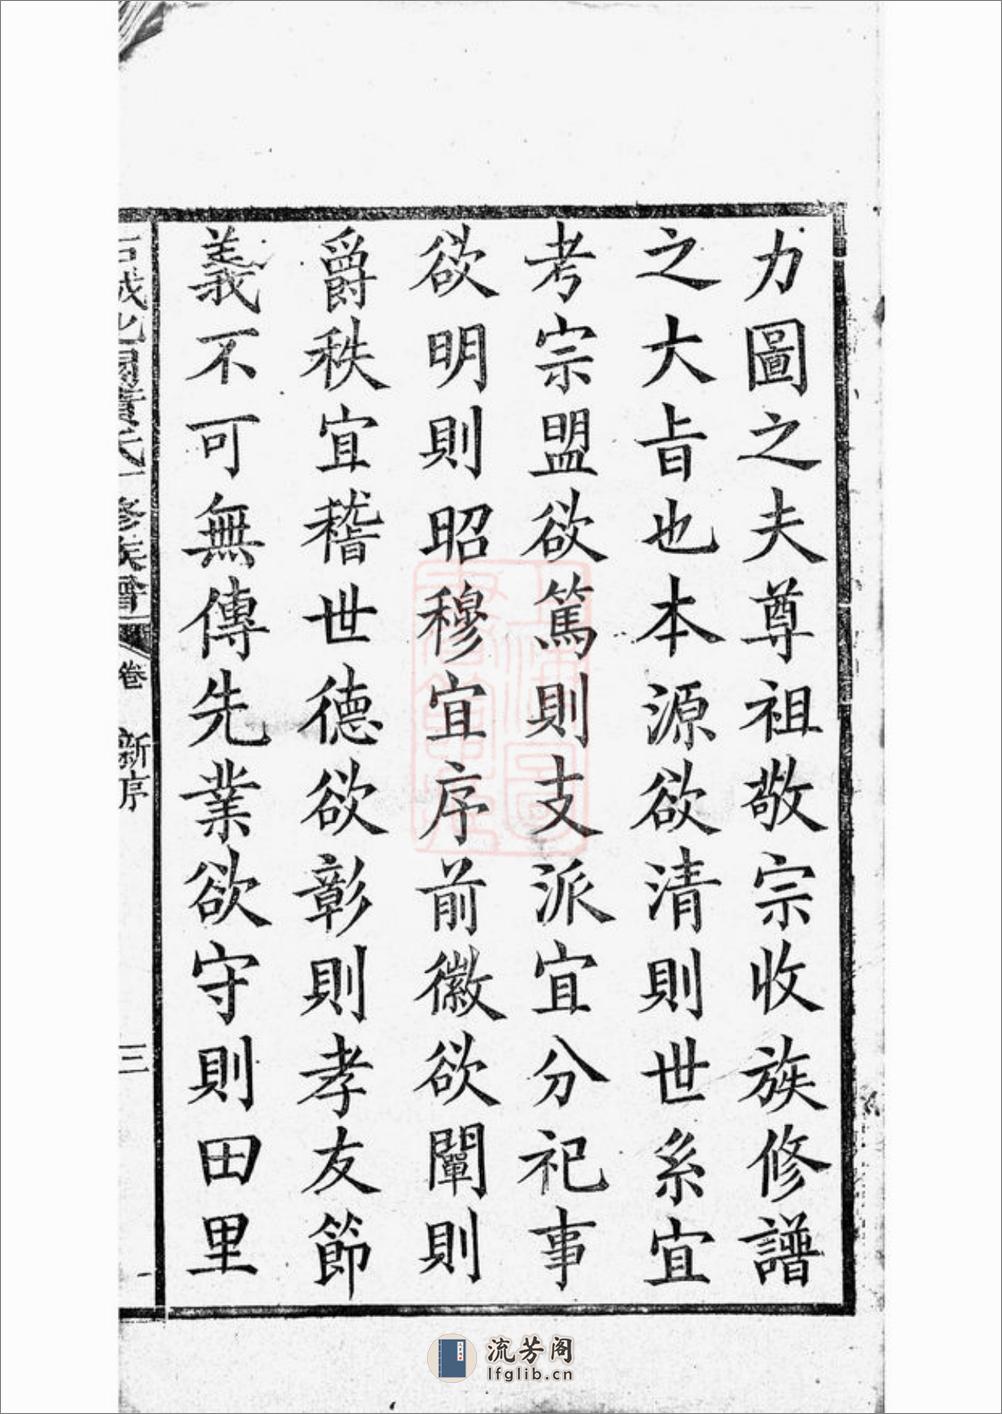 力圖之夫尊祖敬宗收族修譜
之大旨也本源欲清則世系宜
考宗盟欲篤則支派宜分祀事
欲明則昭穆宜序前徽欲闡則
爵秩宜稽世德欲彰則孝友節
義不可無傳先業欲守則田里
氏修族譜 卷 新序 三
流芳阁
lfglib.cn